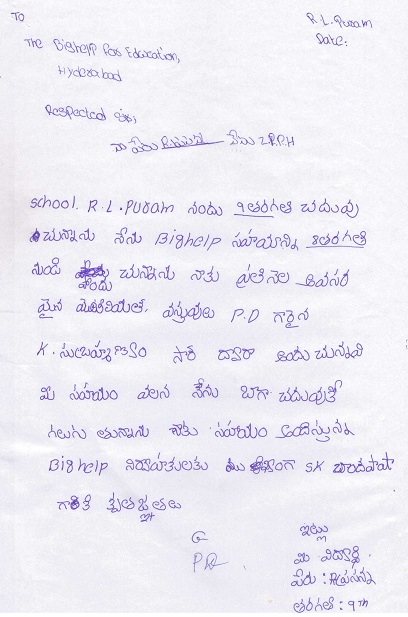 To
R.L.Puram
Date:
The Bighelp for Education,
Hyderabad
Respected sir,
నా పేరు నేను Z.P.H
school. R.L.PURam నందు 9తరగతి చదువు
చున్నాను నేను Bighelp సహాయాన్ని 8తరగతి
నుండి పొందు చున్నాను నాకు ప్రతినెల అవసర
మైన వస్తువులు P.D గారైన
K. సుబ్రహ్మణ్యం సార్ ద్వారా అందు చున్నవి
మీ సహాయం వలన నేను బాగా చదువుతో
గలుగు తున్నాను నాకు సహాయం అందిస్తున్న
Bighelp నిర్వాహకులకు SK చాందపాషా
గారికి కృతజ్ఞతలు
ఇట్లు
మీ విద్యార్థి.
పేరు : ప్రసన్న
తరగతి : 9th